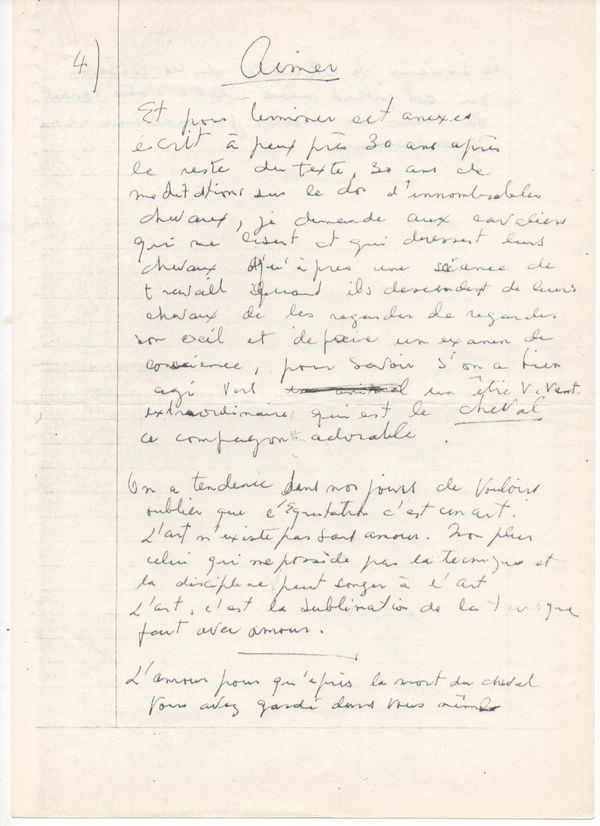 4)
Aimer
Et pour terminer cet anexe
écrit à peux près 30 ans après
le reste du texte, 30 ans de
meditations sur le dos d'innombrables
chevaux, je demande aux cavaliers
qui me lisent et qui dressent leurs
chevaux qu'àpres une séance de
travail quand ils descendent de leurs
chevaux de les regarder de regarder
son oeil et de faire un examen de
conscience, pour savoir s'on a bien
agi vers un animal un être vivent
extraordinaire qui est le cheval
ce compagon adorable
On a tendence dans nos jours de vouloirs
oublier que l'Equitation c'est un art.
L'art n'existe pas sans amour. Non plus
celui qui ne possède pas la tecnique et
la discipline peut songer à l'art
L'art, c'est la sublimation de la tecnique
fait avec amour.
L'amour pour qu'après la mort du cheval
vous avez gardé dans vous même